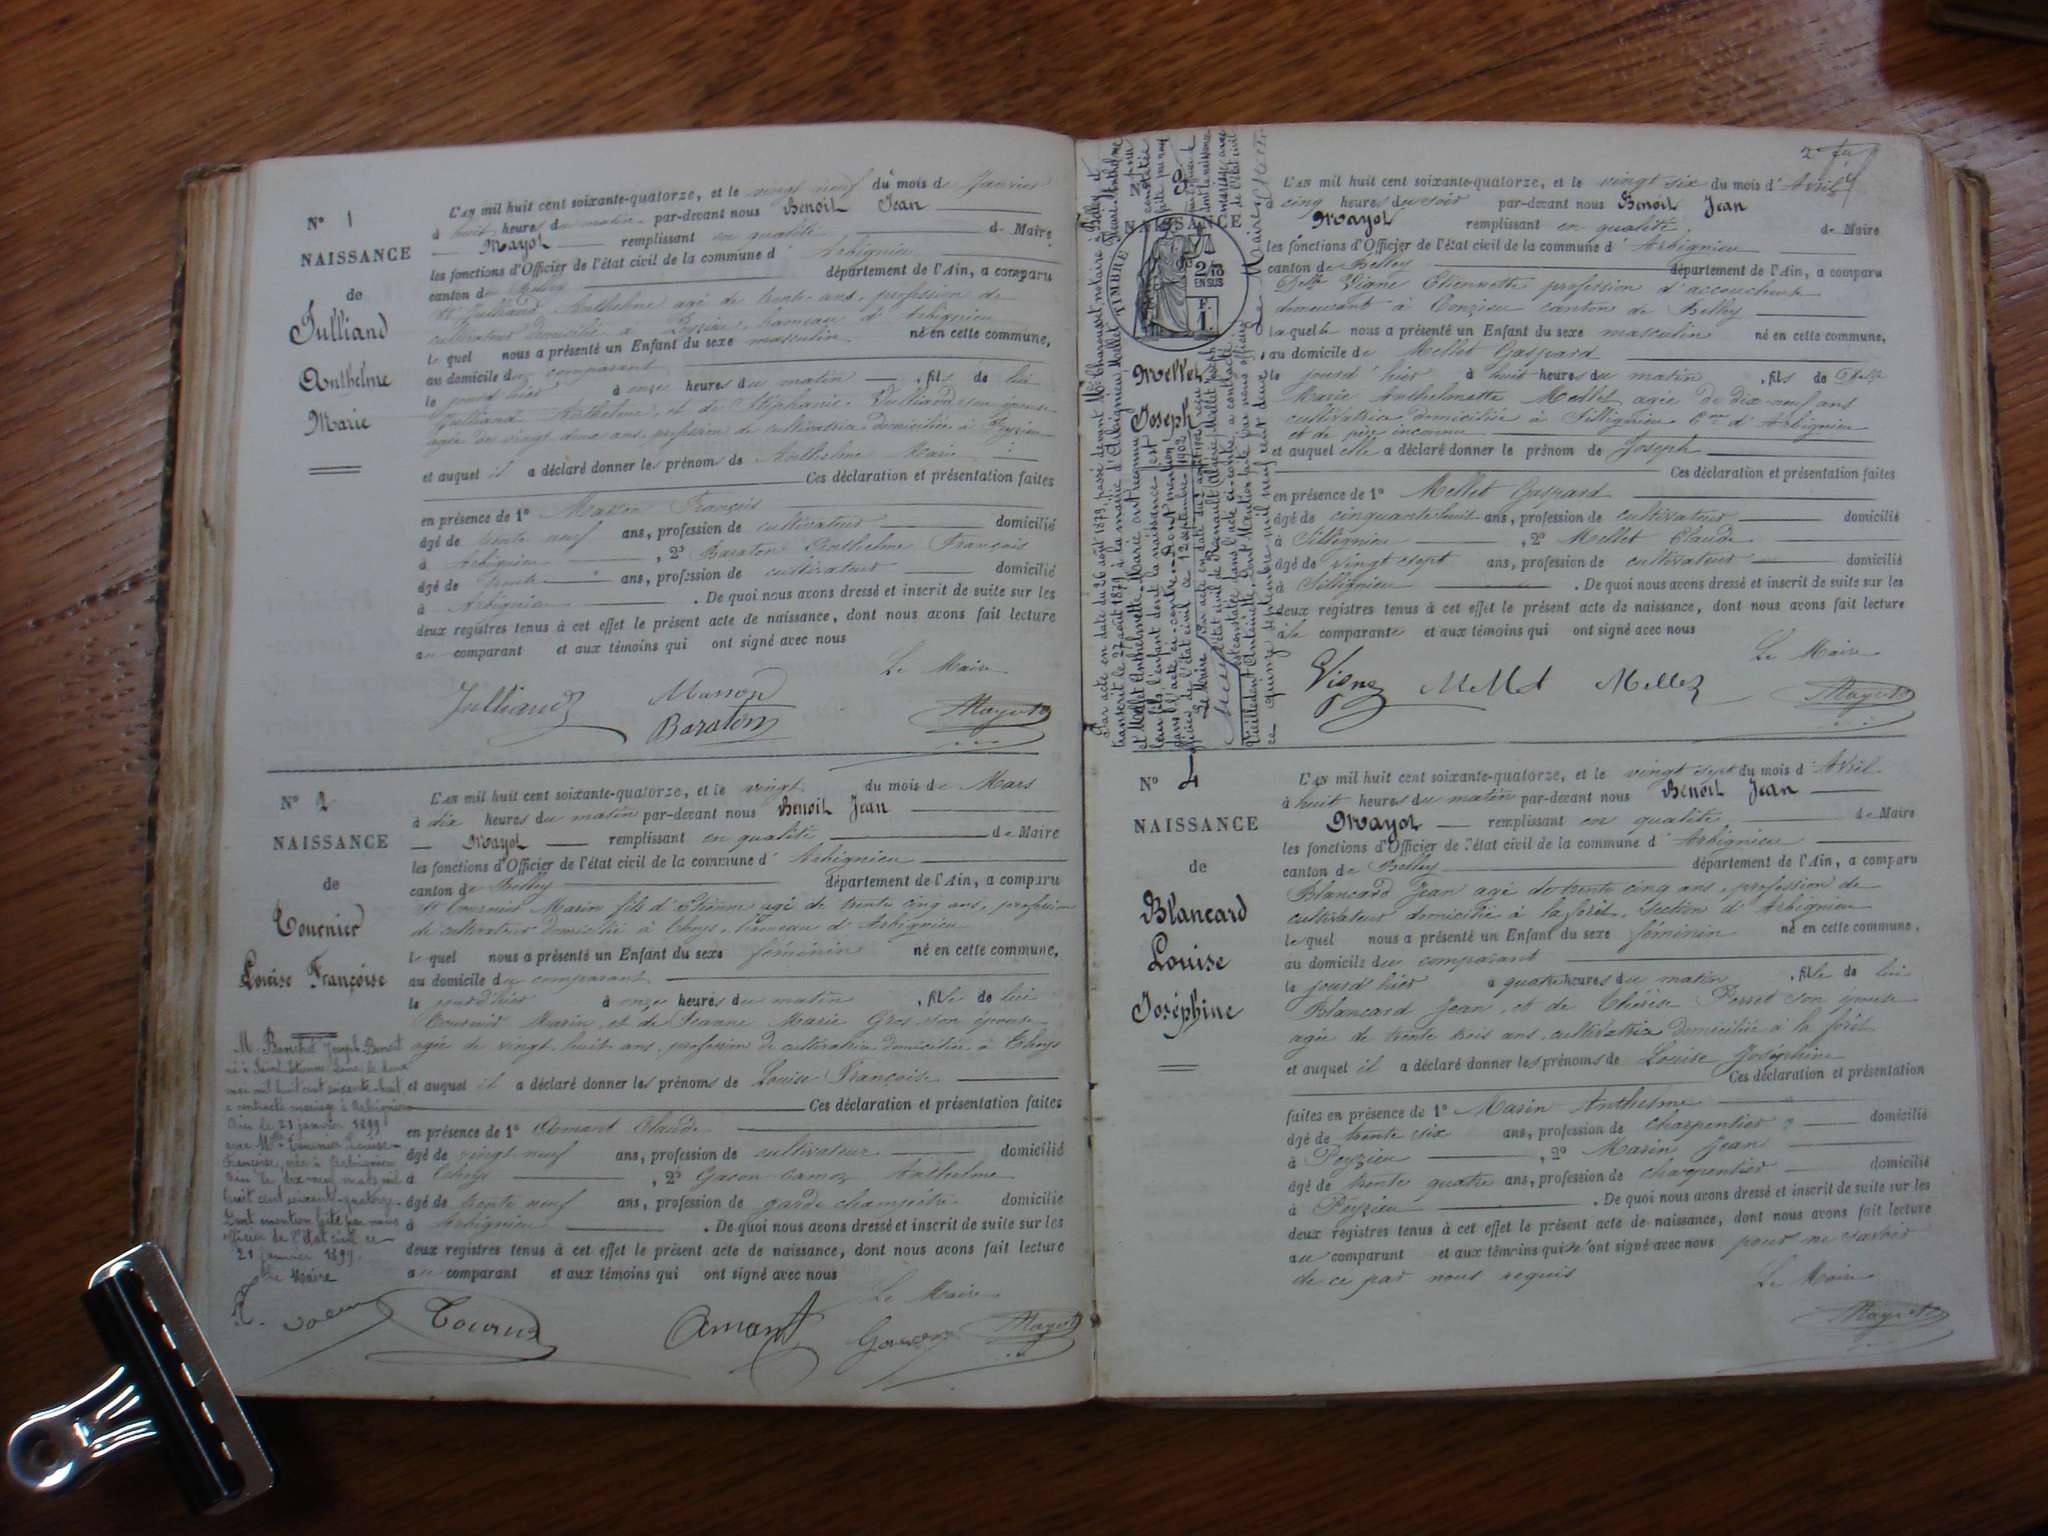 N° 1
NAISSANCE
de
Julliand
Anthelme
Marie
L'AN mil huit cent soixante-quatorze, et le vingt neuf du mois de Janvier
à huit heures du matin par-devant nous Benoit Jean
Mayot remplissant en qualité de Maire
les fonctions d'Officier de l'état civil de la commune d'Arbignieu
canton de Belley département de l'Ain, a comparu
Sr Julliand Anthelme agé de trente ans, profession de
cultivateur domicilié à Peyzieu, hameau d'Arbignieu
le quel nous a présenté un Enfant du sexe masculin né en cette commune,
au domicile du comparant
le jourd'hier à onze heures du matin, fils de lui
Julliand Anthelme, et de Stéphanie Julliand son épouse
agée de vingt deux ans, profession de cultivatrice domiciliée à Peyzieu
et auquel il a déclaré donner les prénoms de Anthelme Marie
Ces déclaration et présentation faites
en présence de 1° Masson François
âgé de trente neuf ans, profession de cultivateur domicilié
à Arbignieu, 2° Baraton Anthelme François
âgé de trente ans, profession de cultivateur domicilié
à Arbignieu. De quoi nous avons dressé et inscrit de suite sur les
deux registres tenus à cet effet le présent acte de naissance, dont nous avons fait lecture
au comparant et aux témoins qui ont signé avec nous
Le Maire
Julliand Masson
Baraton Mayot
N° 2
NAISSANCE
de
Tournier
Louise Françoise
L'AN mil huit cent soixante-quatorze, et le vingt du mois de Mars
à dix heures du matin par-devant nous Benoit Jean
Mayot remplissant en qualité de Maire
les fonctions d'Officier de l'état civil de la commune d'Arbignieu
canton de Belley département de l'Ain, a comparu
Sr Tournier Marin fils d'Etienne agé de trente cinq ans, profession
de cultivateur domicilié à Thoys, hameau d'Arbignieu
le quel nous a présenté un Enfant du sexe féminin né en cette commune,
au domicile du comparant
le jourd'hier à onze heures du matin, fille de lui
Tournier Marin, et de Jeanne Marie Gros son épouse
agée de vingt huit ans, profession de cultivatrice domiciliée à Thoys
et auquel il a déclaré donner les prénoms de Louise Françoise
Ces déclaration et présentation faites
en présence de 1° Amant Claude
âgé de vingt neuf ans, profession de cultivateur domicilié
à Thoys, 2° Anthelme
âgé de trente neuf ans, profession de garde champêtre domicilié
à Arbignieu. De quoi nous avons dressé et inscrit de suite sur les
deux registres tenus à cet effet le présent acte de naissance, dont nous avons fait lecture
au comparant et aux témoins qui ont signé avec nous
Le Maire
Amant Mayot
Joseph Benoit
né à Saint Etienne Loire le deux
mai mil huit cent soixante-huit
a contracté mariage à Arbignieu
Ain le 21 janvier 1899
avec Mlle Tournier Louise
Françoise, née à Arbignieu
Ain le dix-neuf mars mil
huit cent soixante-quatorze.
Dont mention faite par nous
officier de l'état civil ce
21 janvier 1899.
Le Maire
2e
N° 3
NAISSANCE
TIMBRE
2/10
EN SUS
F.
1.
Mellet
Joseph
L'AN mil huit cent soixante-quatorze, et le vingt six du mois d'Avril
cinq heures du soir par-devant nous Benoit Jean
Mayot remplissant en qualité de Maire
les fonctions d'Officier de l'état civil de la commune d'Arbignieu
canton de Belley département de l'Ain, a comparu
Vigne Etiennette profession d'accoucheuse
demeurant à Conzieu canton de Belley
la quelle nous a présenté un Enfant du sexe masculin né en cette commune,
au domicile de Mellet Gaspard
le jourd'hier à huit heures du matin, fils de
Marie Anthelmette Mellet agée de dix-neuf ans
cultivatrice domiciliée à Sillignieu Cne d'Arbignieu
et de père inconnu
et auquel elle a déclaré donner le prénom de Joseph
Ces déclaration et présentation faites
en présence de 1° Mellet Gaspard
âgé de cinquante huit ans, profession de cultivateur domicilié
à Sillignieu, 2° Mellet Claude
âgé de vingt sept ans, profession de cultivateur domicilié
à Sillignieu. De quoi nous avons dressé et inscrit de suite sur les
deux registres tenus à cet effet le présent acte de naissance, dont nous avons fait lecture
à la comparante et aux témoins qui ont signé avec nous
Le Maire
Vigne Mellet Mellet Mayot
Par acte en date du 26 août 1879, passé devant Me notaire à Belley et
transcrit le 27 août 1879 à la mairie d'Arbignieu Mellet
et Mellet Anthelmette Marie ont reconnu
leur fils l'enfant dont la naissance est constatée
dans l'acte ci-contre. Dont mention faite par nous
officier de l'état civil ce 12 septembre 1902
Le Maire
N° 4
NAISSANCE
de
Blancard
Louise
Joséphine
L'AN mil huit cent soixante-quatorze, et le vingt sept du mois d'Avril
à huit heures du matin par-devant nous Benoit Jean
Mayot remplissant en qualité de Maire
les fonctions d'Officier de l'état civil de la commune d'Arbignieu
canton de Belley département de l'Ain, a comparu
Blancard Jean agé de trente cinq ans, profession de
cultivateur domicilié à la forêt, section d'Arbignieu
le quel nous a présenté un Enfant du sexe féminin né en cette commune,
au domicile du comparant
le jourd'hier à quatre heures du matin, fille de lui
Blancard Jean, et de Thérèse Perret son épouse
agée de trente trois ans, cultivatrice domiciliée à la forêt
et auquel il a déclaré donner les prénoms de Louise Joséphine
Ces déclaration et présentation
faites en présence de 1° Marin Anthelme
âgé de trente six ans, profession de charpentier domicilié
à Peyzieu, 2° Marin Jean
âgé de trente quatre ans, profession de charpentier domicilié
à Peyzieu. De quoi nous avons dressé et inscrit de suite sur les
deux registres tenus à cet effet le présent acte de naissance, dont nous avons fait lecture
au comparant et aux témoins qui n'ont signé avec nous pour ne savoir
de ce par nous requis
Le Maire
Mayot